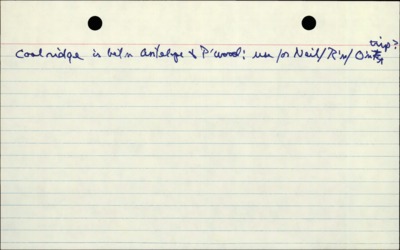 trip?
Coalridge is betn Antelope & P'wood: use for Neil/R'n/